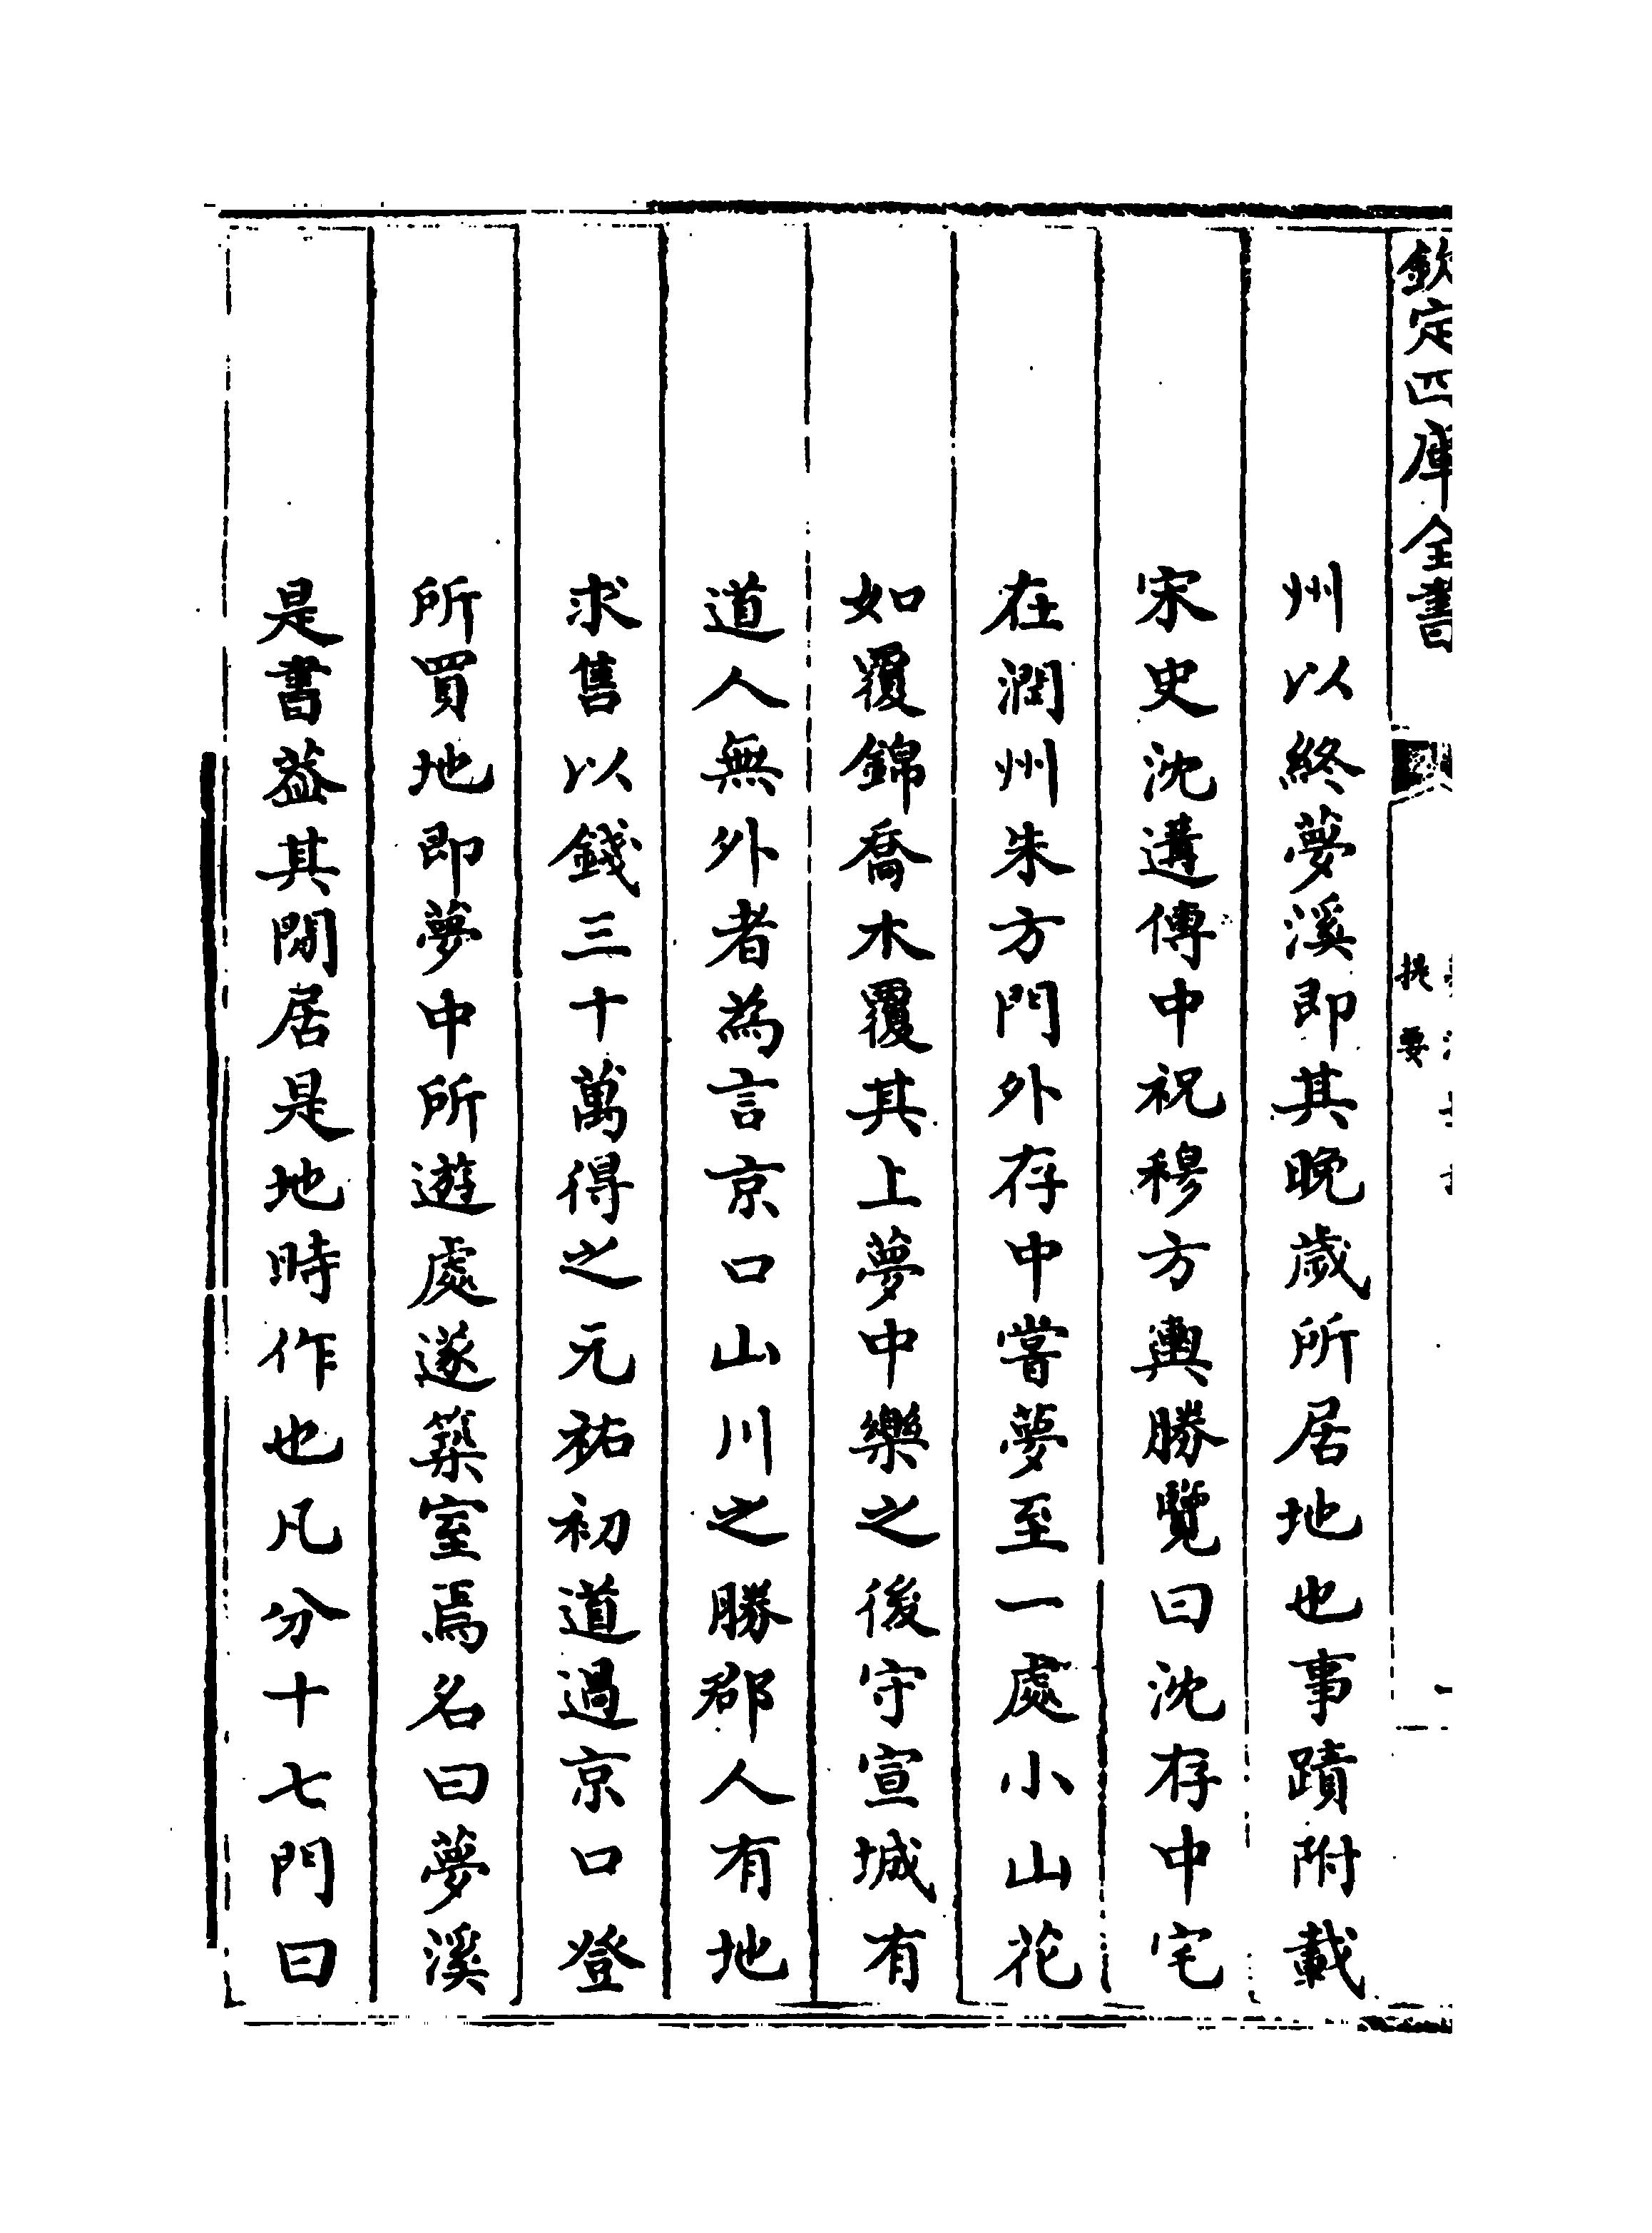 欽定四庫全書
提要
州以終夢溪即其晚歲所居地也事蹟附載
宋史沈遘傳中祝穆方輿勝覽曰沈存中宅
在潤州朱方門外存中嘗夢至一處小山花
如覆錦喬木覆其上夢中樂之後守宣城有
道人無外者為言京口山川之勝郡人有地
求售以錢三十萬得之元祐初道過京口登
所買地即夢中所遊處遂築室焉名曰夢溪
是書葢其閒居是地時作也凡分十七門曰